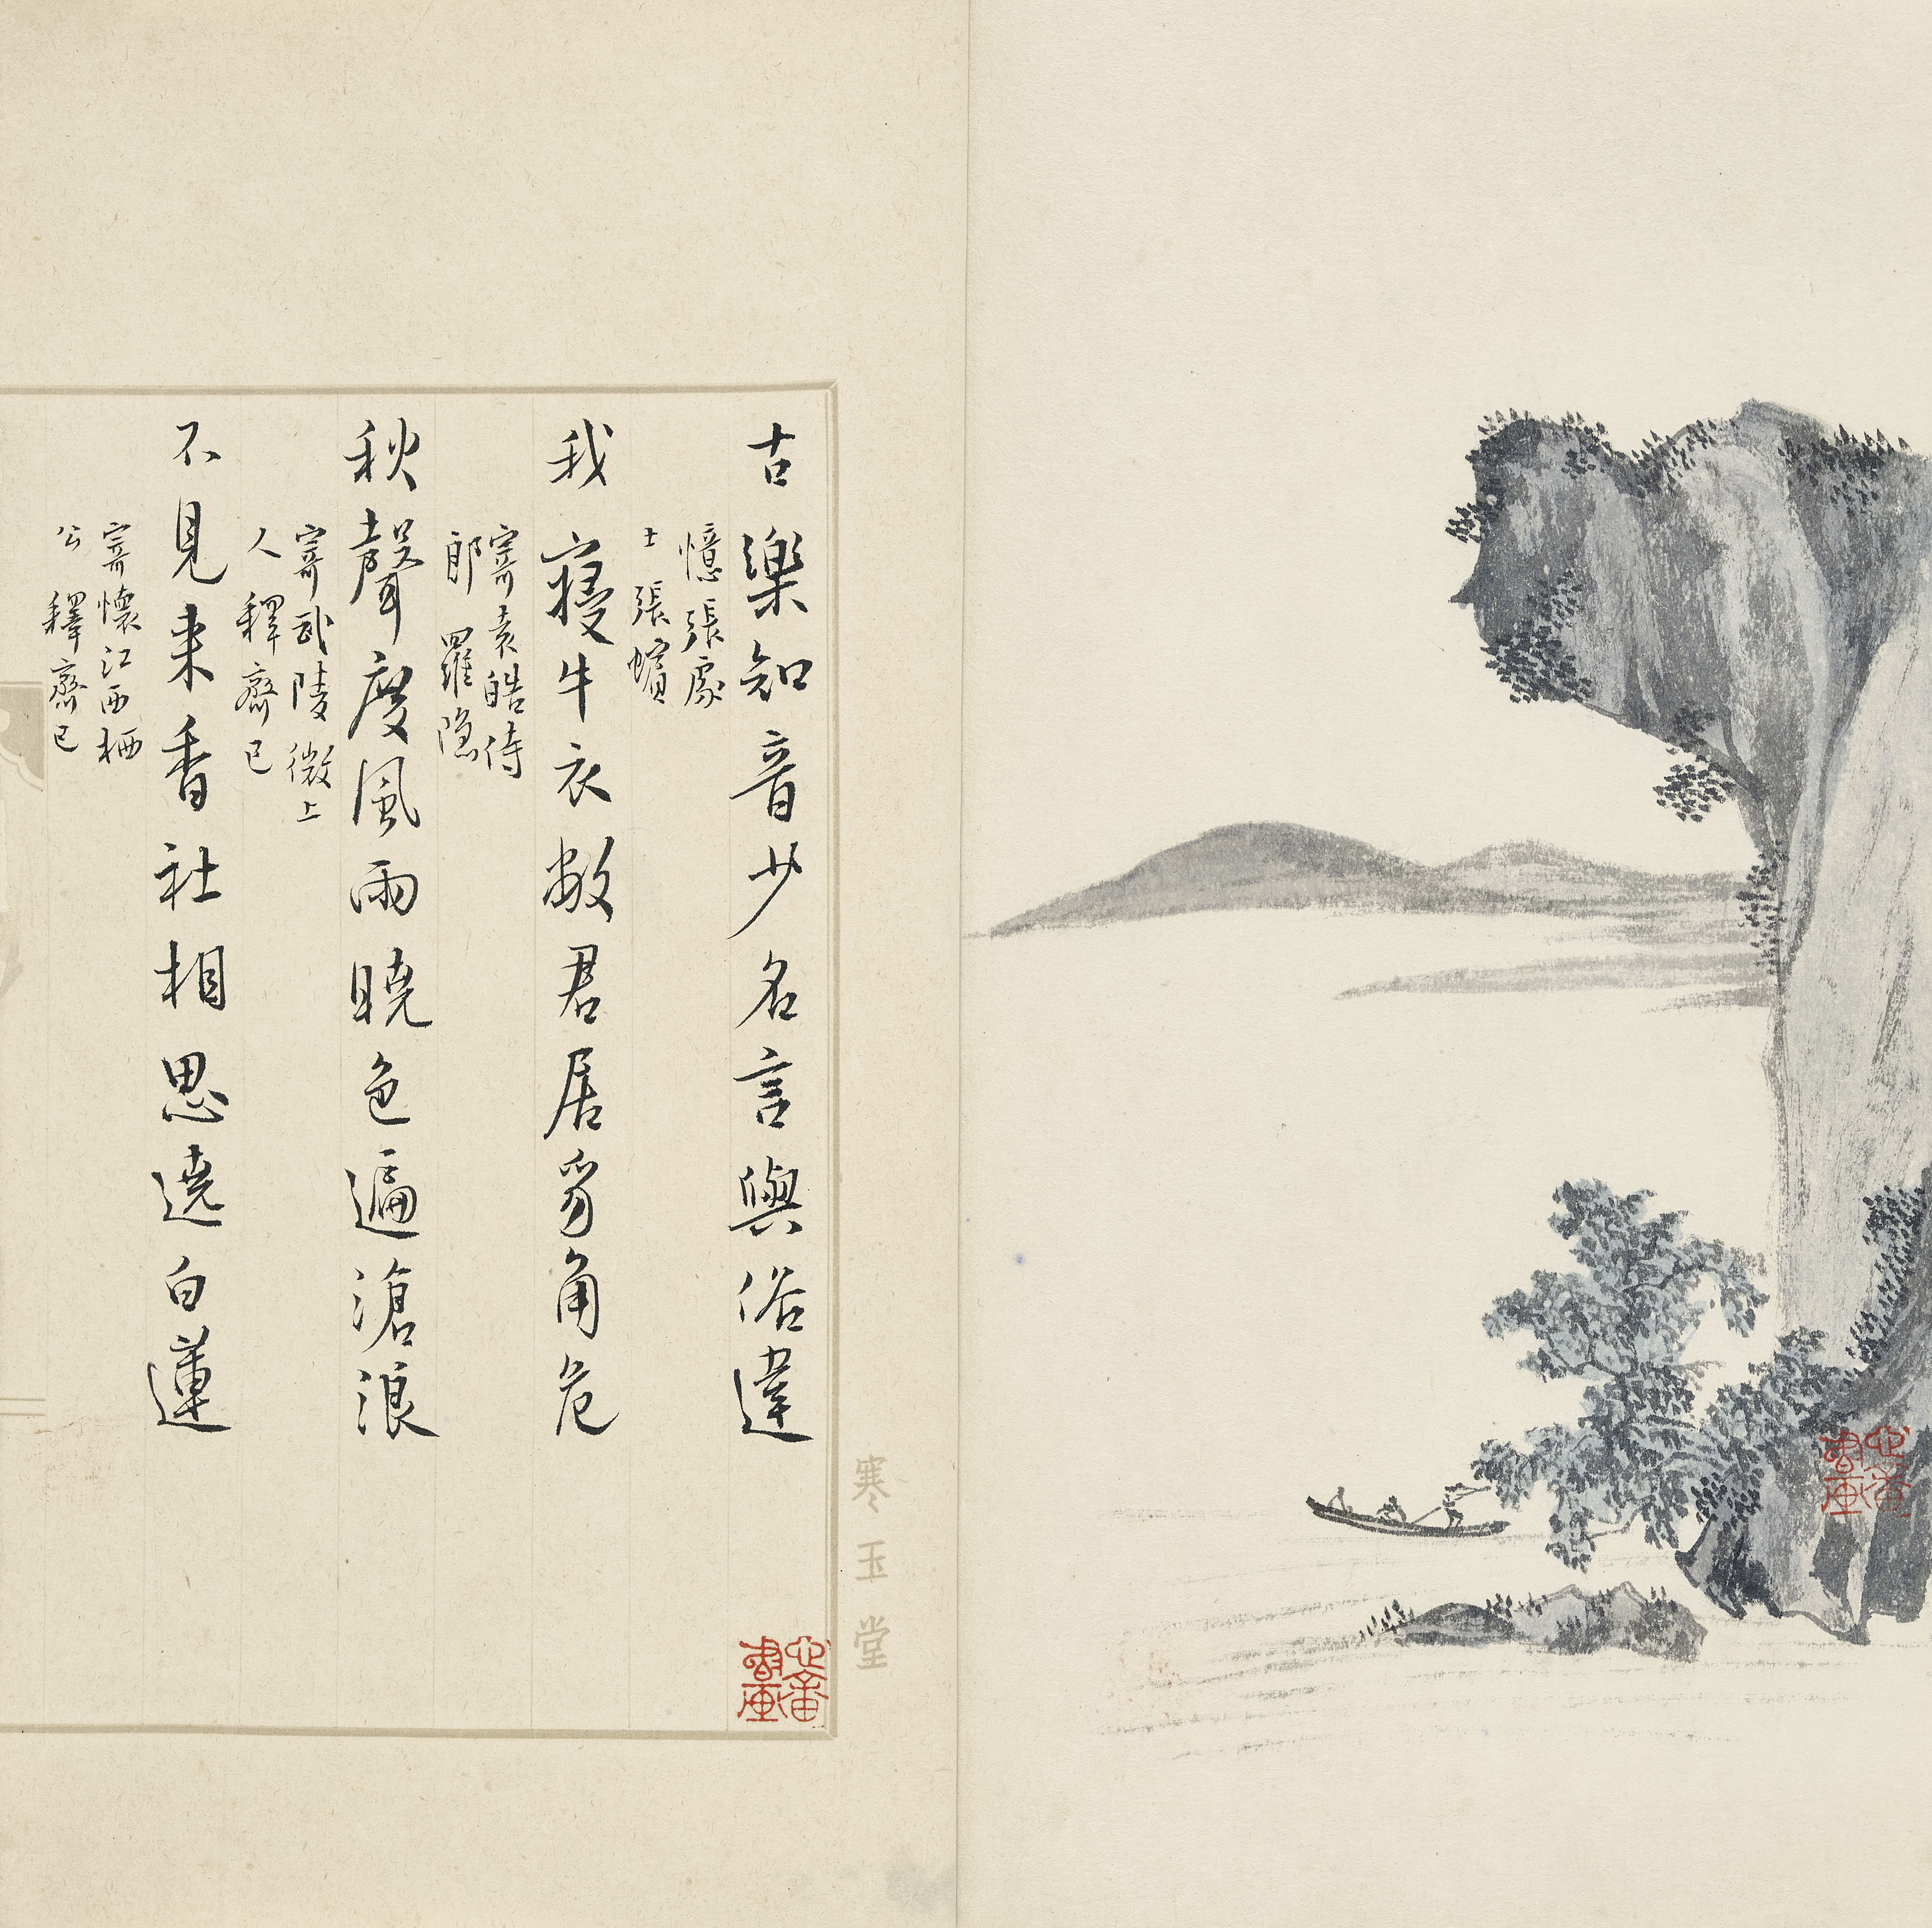 心畬書畫
寒玉堂
古樂知音少名言與俗違
憶張處
士 張蠙
我寢牛衣敝君居豸角危
寄袁皓侍
郎 羅隱
秋聲度風雨曉色遍滄浪
寄武陵微上
人 釋齋已
不見來香社相思遶白蓮
寄懷江西栖
公 釋齋已
心畬書畫